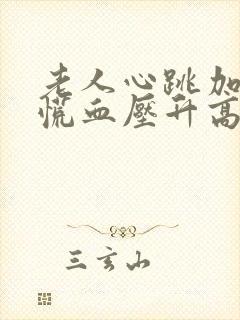 老人心跳加
慌血壓升高
三玄山